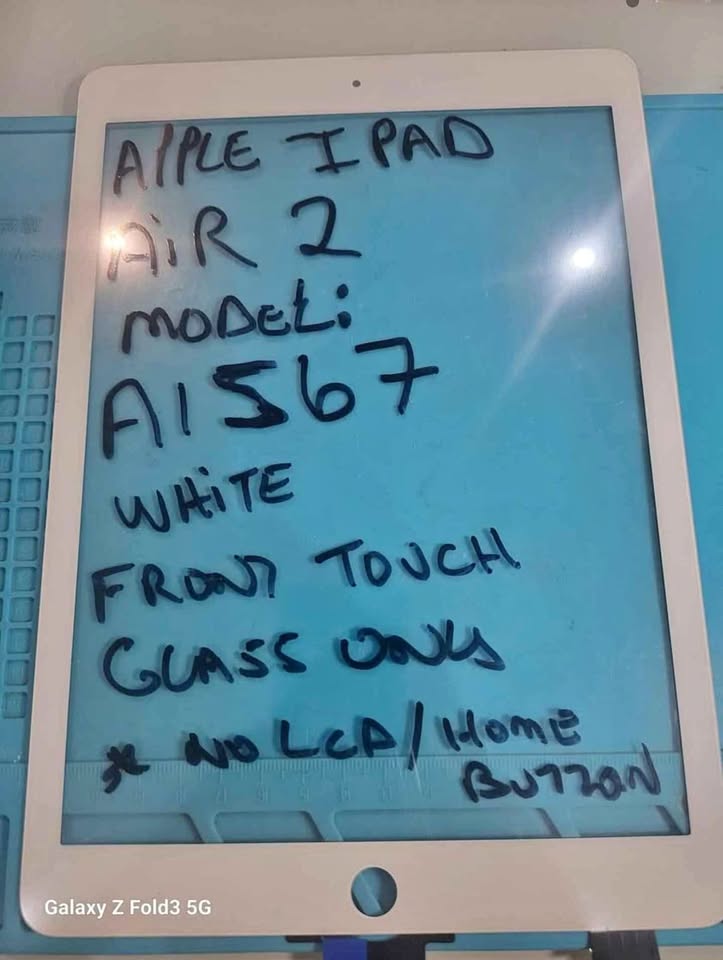 APPLE IPAD
AiR 2
MODEL:
A1567
WHiTE
FRONT TOUCH
GLASS ONLY
* NO LCD/HOME
BUTTON
Galaxy Z Fold3 5G